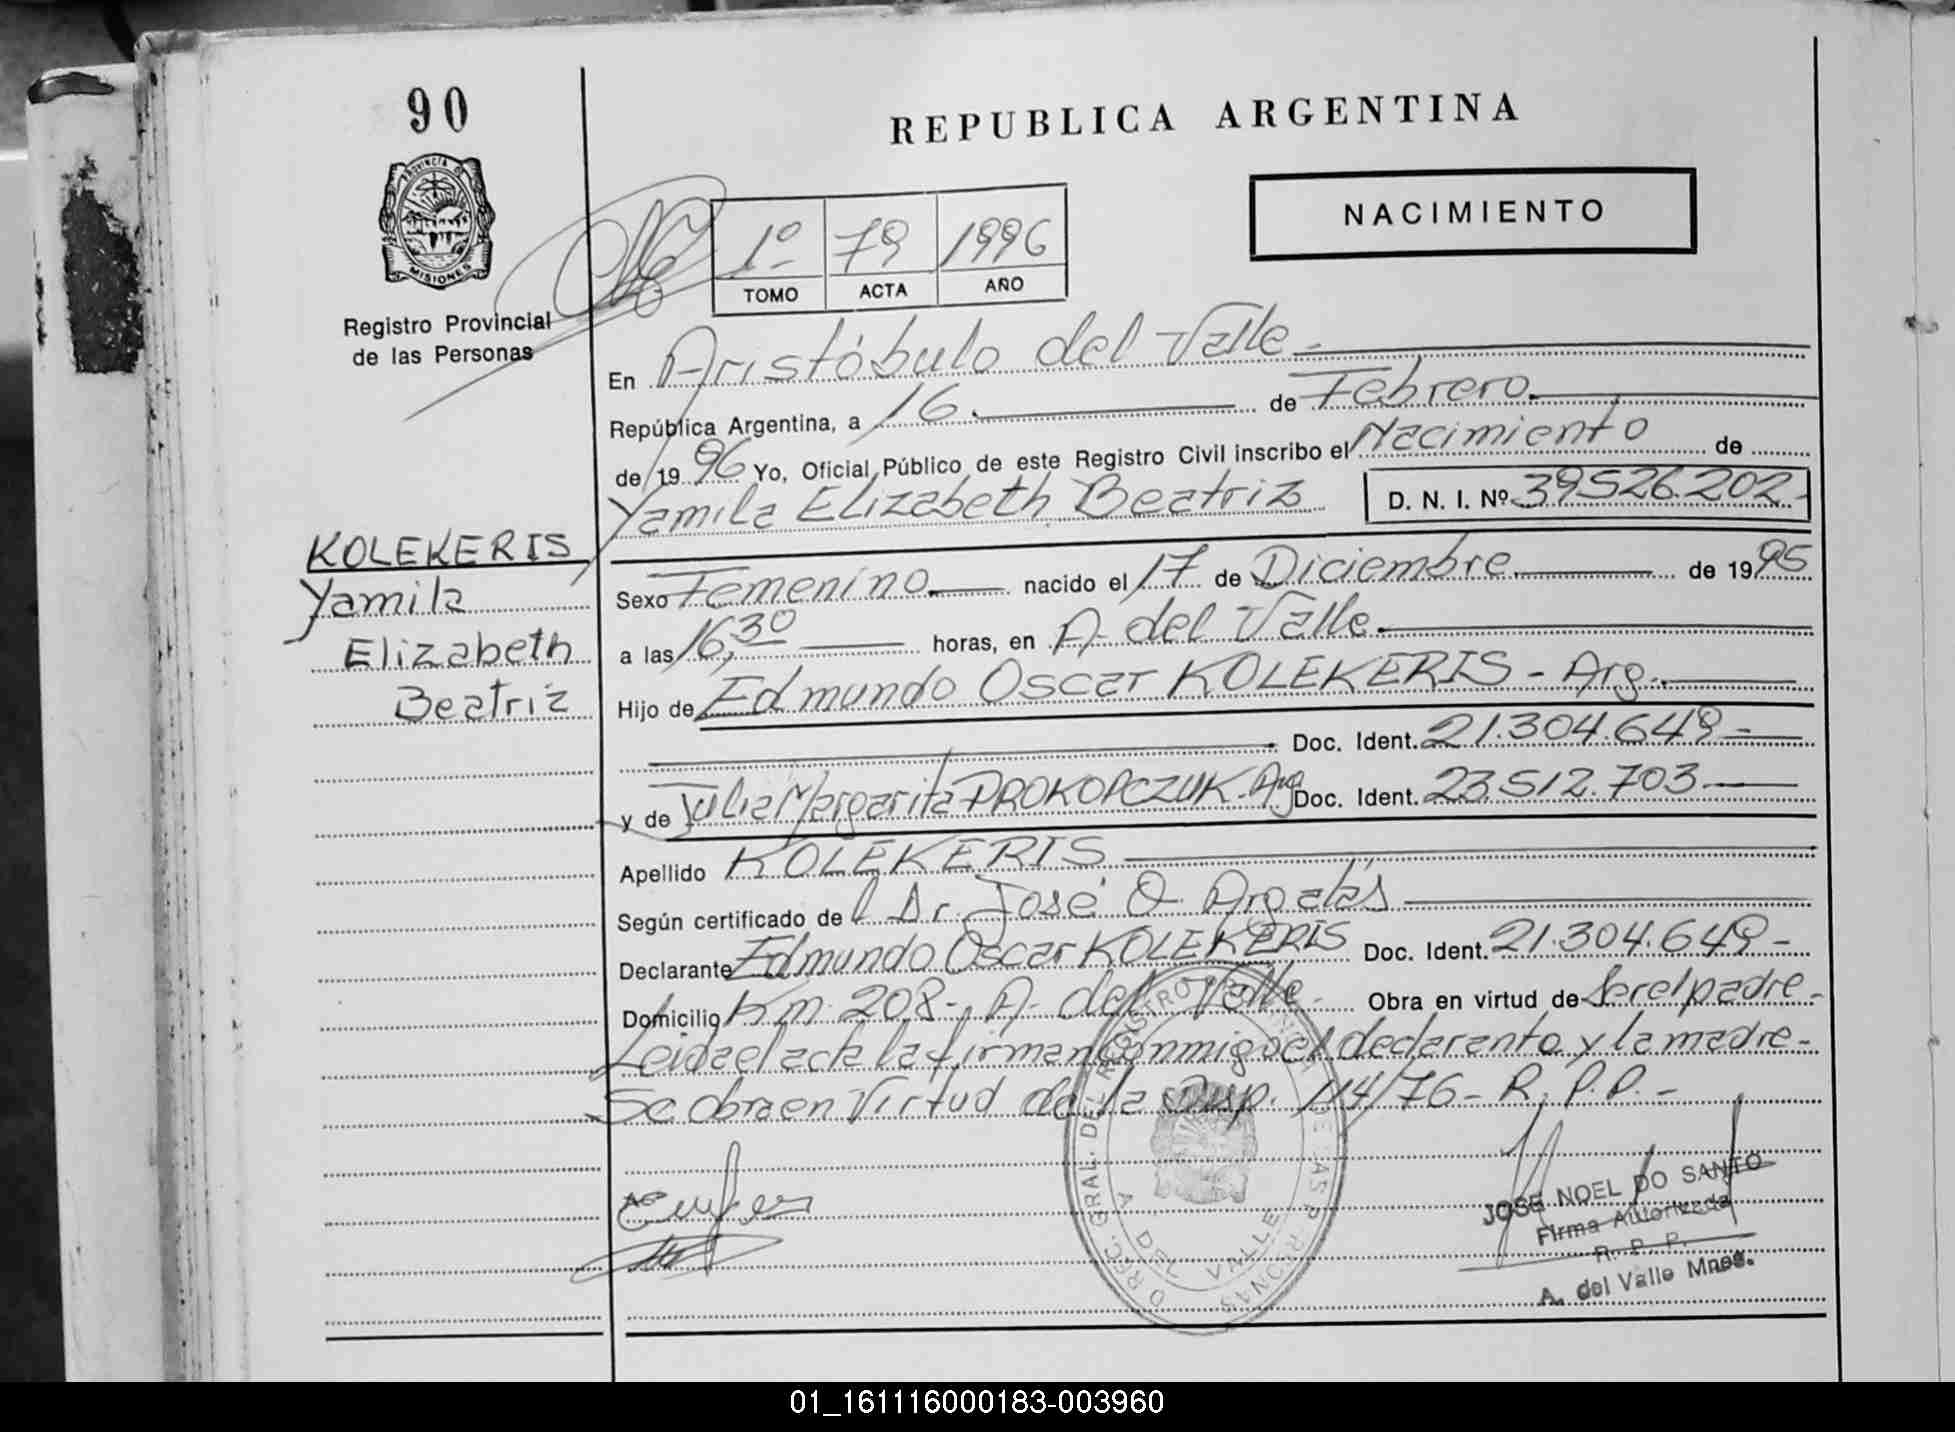 90
REPUBLICA ARGENTINA
PROVINCIA DE
MISIONES
Registro Provincial
de las Personas
1º 79 1996
TOMO ACTA AÑO
NACIMIENTO
En Aristóbulo del Valle
República Argentina, a 16 de Febrero
de 1996 Yo, Oficial Público de este Registro Civil inscribo el Nacimiento de
Yamila Elizabeth Beatriz D. N. I. Nº 39.526.202.-
KOLEKERIS
Yamila
Elizabeth
Beatriz
Sexo Femenino nacido el 17 de Diciembre de 1995
a las 16,30 horas, en A. del Valle
Hijo de Edmundo Oscar KOLEKERIS - Arg.
Doc. Ident. 21.304.649 -
y de Julia Margarita PROKOPCZUK. Arg Doc. Ident. 23.512.703
Apellido KOLEKERIS
Según certificado de l Dr José O. Argatás
Declarante Edmundo Oscar KOLEKERIS Doc. Ident. 21.304.649 -
Domicilio Km 208 - A. del Valle - Obra en virtud de Ser el padre -
Leida el acta la firman conmigo el declarante y la madre -
Se obra en Virtud de la Disp. 114/76 - R. P.P. -
JOSE NOEL DO SANTO
Firma Autorizada
R. P. P.
A. del Valle Mnes.
01_161116000183-003960